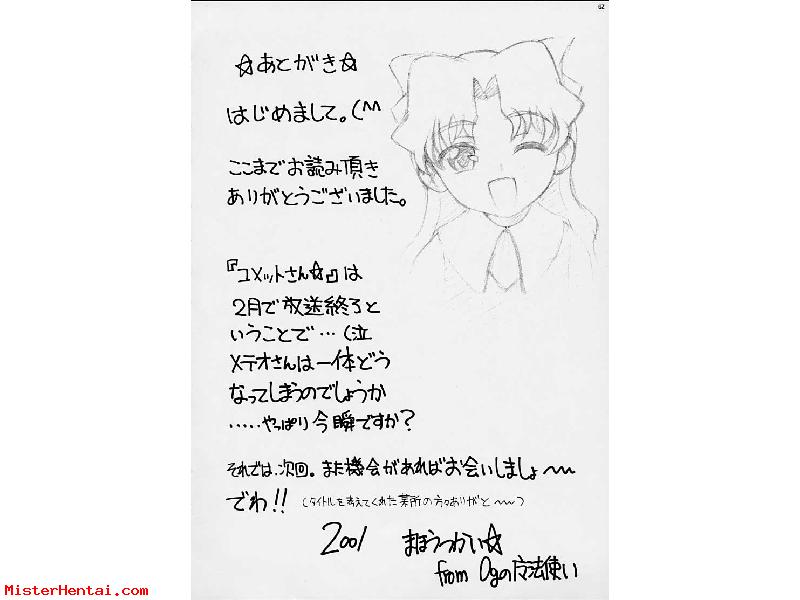 62
☆あとがき☆
はじめまして。(^^
ここまでお読み頂き
ありがとうございました。
『コメットさん☆』は
2月で放送終了と
いうことで…(泣
メテオさんは一体どう
なってしまうのでしょうか
.....やっぱり今瞬ですか?
それでは、次回。また機会があればお会いしましょ〜〜
でわ!!(タイトルを考えてくれた某所の方々ありがと〜〜)
2001 まほうつかい☆
from Ogの魔法使い
MisterHentai.com